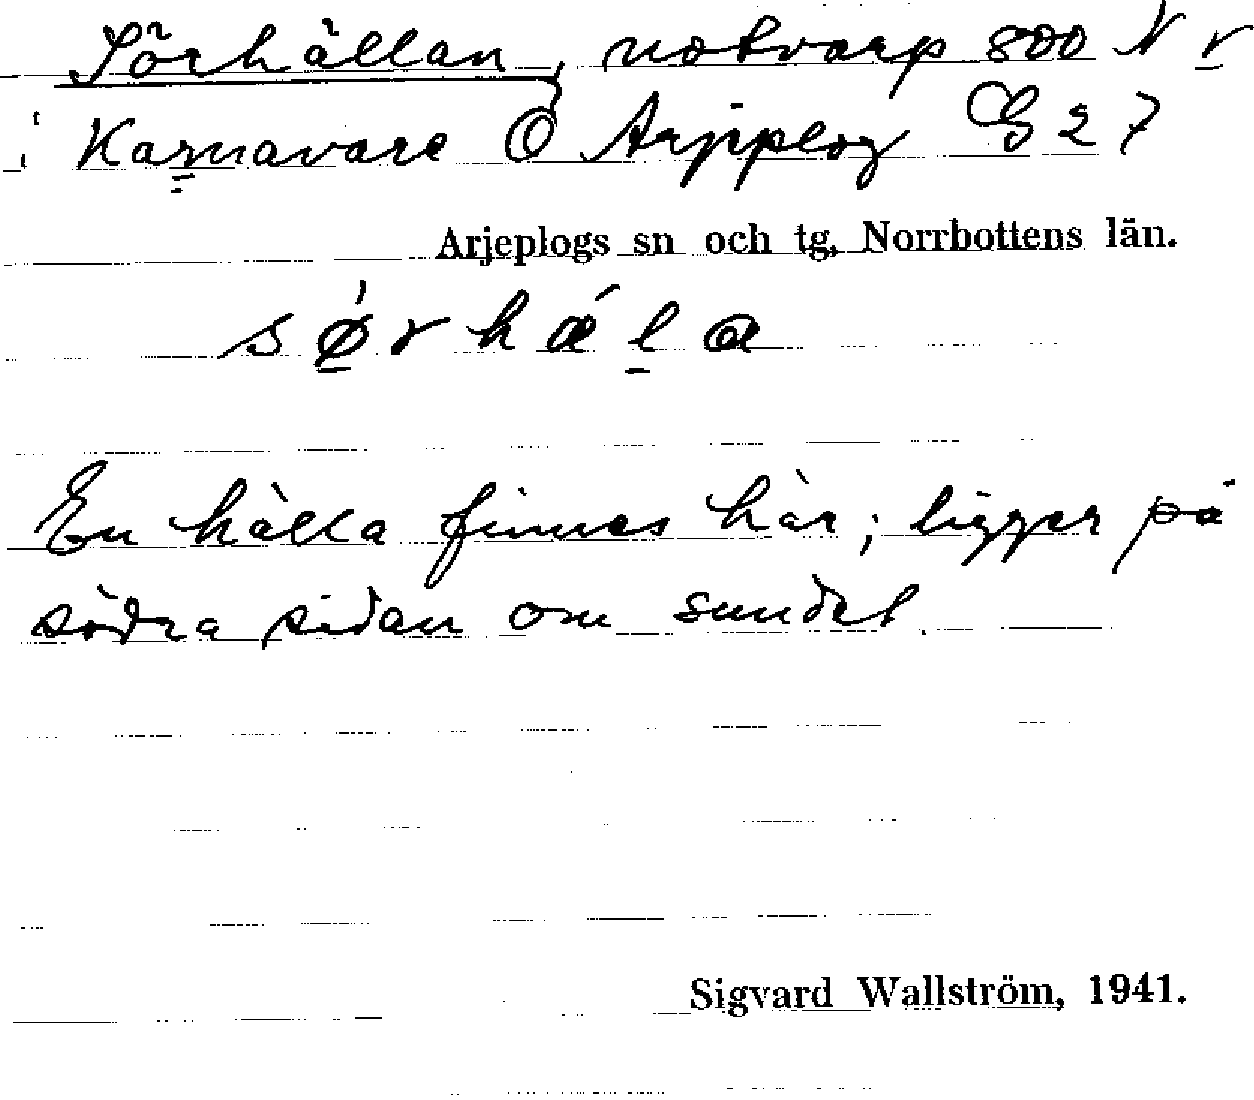 Sörhällan, notvarp 800 N v
i Karnavare O Arjeplog G 27
Arjeplogs sn och tg, Norrbottens län.
sø̀rhǽla
En hälla finnes här; ligger på
södra sidan om sundet.
Sigvard Wallström, 1941.